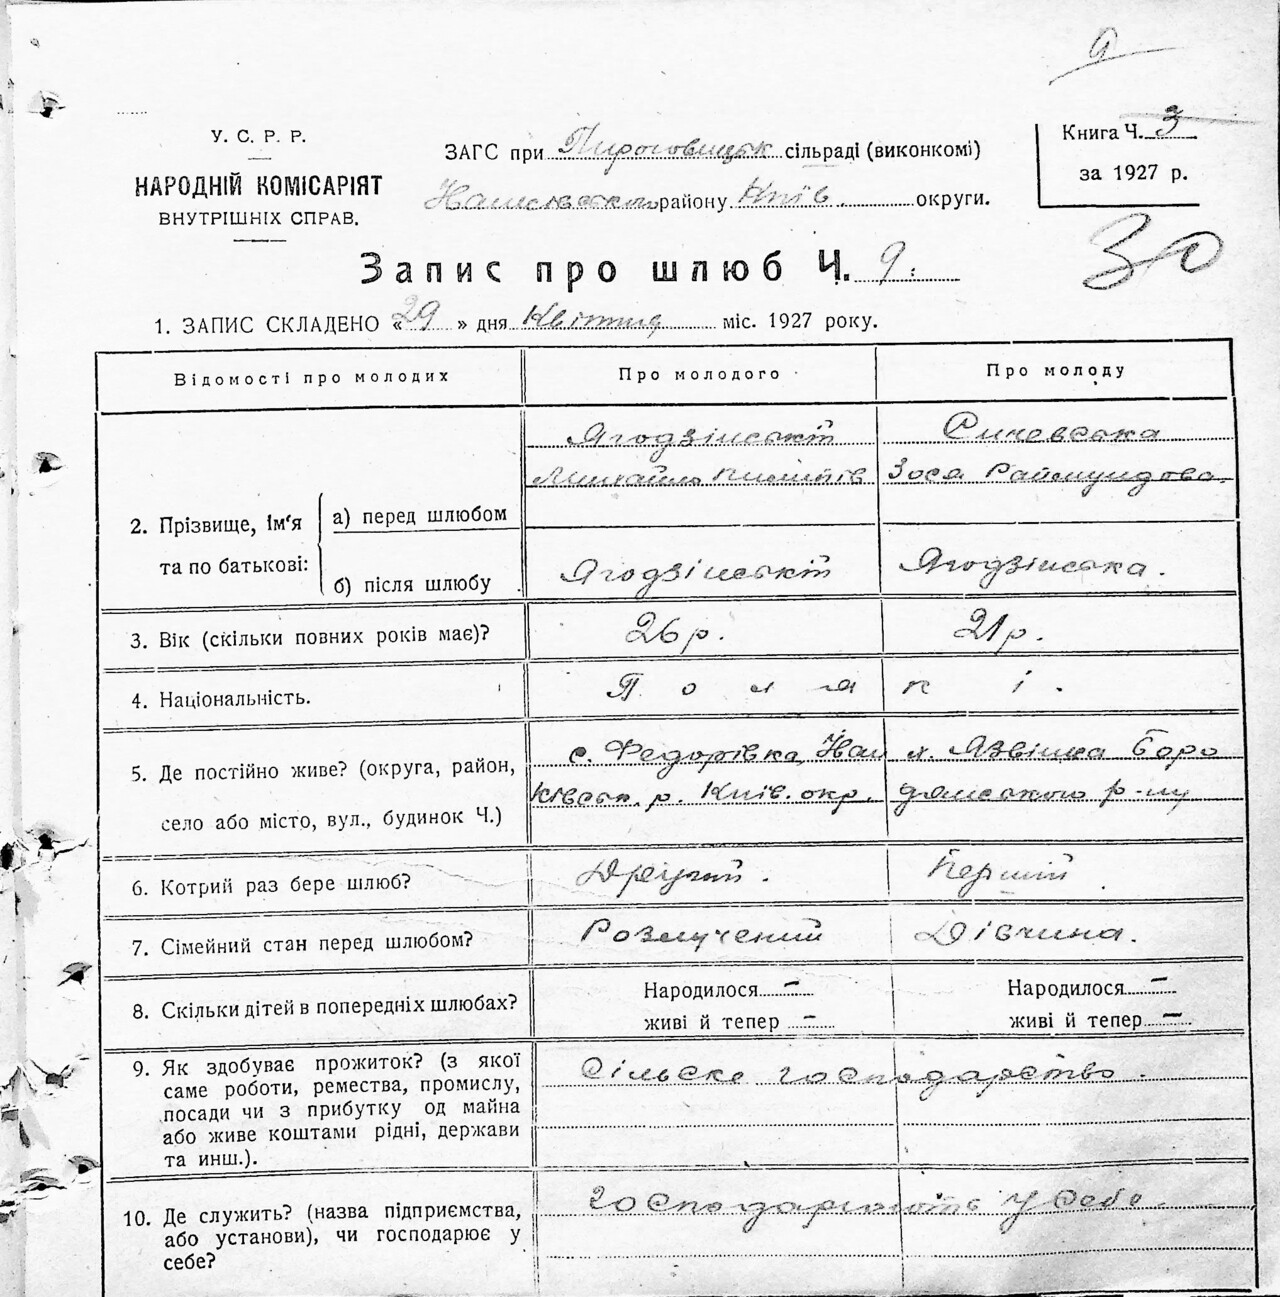 9
У. С. Р. Р.
НАРОДНІЙ КОМІСАРІЯТ
ВНУТРІШНІХ СПРАВ.
ЗАГС при Пироговицьк сільраді (виконкомі)
району Київ. округи.
Книга Ч. 3
за 1927 р.
30
Запис про шлюб Ч. 9.
1. ЗАПИС СКЛАДЕНО «29» дня Квітня міс. 1927 року.
Відомості про молодих
Про молодого
Про молоду
2. Прізвище, ім'я та по батькові:
а) перед шлюбом
Ягодзінські
Михайло Пилипів
Синевська
Зося Раймундова.
б) після шлюбу
Ягодзінські
Ягодзінська.
3. Вік (скільки повних років має)?
26 р.
21 р.
4. Національність.
Поляки.
5. Де постійно живе? (округа, район,
село або місто, вул., будинок Ч.)
с. Федорівка, Нан
ківськ. р. Київ. окр.
х. Язвінка Боро
дянського р-ну
6. Котрий раз бере шлюб?
Другий.
Перший
7. Сімейний стан перед шлюбом?
Розлучений
Дівчина.
8. Скільки дітей в попередніх шлюбах?
Народилося –
живі й тепер –
Народилося –
живі й тепер –
9. Як здобуває прожиток? (з якої
саме роботи, ремества, промислу,
посади чи з прибутку од майна
або живе коштами рідні, держави
та инш.).
Сільске господарство.
10. Де служить? (назва підприємства,
або установи), чи господарює у
себе?
Господарюють у себе.